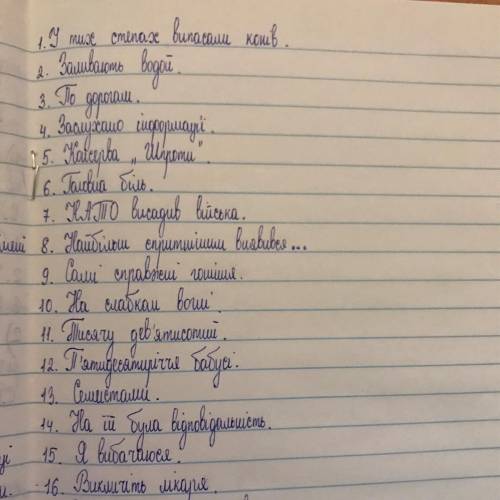 1. У тих степах випасали конів.
2. Заливають водой.
3. По дорогам.
4. Заслухано інформації.
5. Консерва „Шпроти".
6. Головна біль.
7. НАТО висадив війська.
8. Найбільш спритнішим виявився...
9. Самі справжні
10. На слабкам вогні.
11. Тисячу дев'ятисотий.
12. П'ятидесятиріччя бабусі.
13. Семистами.
14. На їй була відповідальність.
15. Я вибачаюся.
16. Викличіть лікаря.